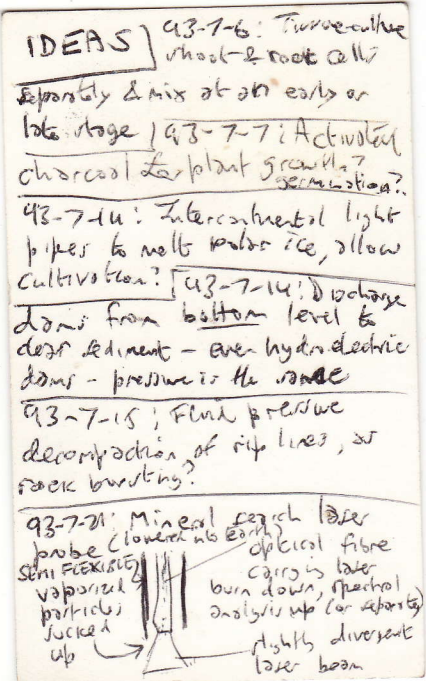 IDEAS
93-7-6: Tissue culture
shoot & root cells
separately & mix at an early or
late stage
93-7-7: Activated
charcoal for plant growth?
germination?
93-7-14: Intercontinental light
pipes to melt polar ice, allow
cultivation?
93-7-14: Discharge
dams from bottom level to
clear sediment - even hydroelectric
dams - pressure is the same
93-7-15: Fluid pressure
decompaction of rip lines, or
rock bursting?
93-7-21: Mineral search laser
probe (lowered into earth)
SEMI FLEXIBLE
vaporized
particles
sucked
up
optical fibre
carrying laser
burn down, spectral
analysis up (or separate)
slightly divergent
laser beam